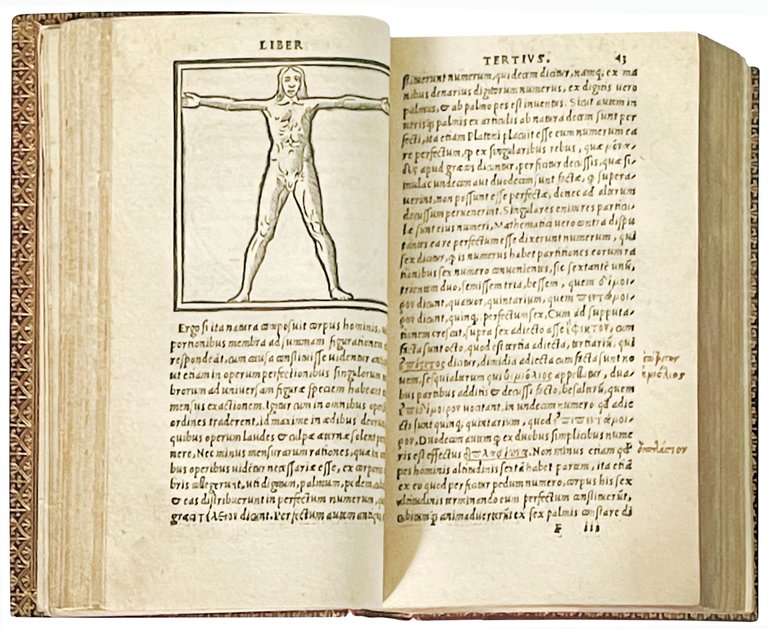 LIBER
Ergo si ita natura composuit corpus hominis,
portionibus membra ad summam figurationem
respondeāt, cum causa constituisse uidentur
ut etiam in operum perfectionibus singulorum
brorum ad uniuersam figuræ speciem habeant
mensus exactionem. Igitur cum in omnibus
ordines traderent, id maxime in ædibus
quibus operum laudes & culpæ æternæ solent
nere. Nec minus mensurarum rationes, quæ in
bus operibus uidētur necessariæ esse, ex
bris collegerūt, uti digitum, palmum, pedem,
& eas distribuerunt in perfectum numerum,
græci τέλειον dicunt. Perfectum autem
TERTIVS. 43
stituerunt numerum, qui decem dicitur, namq; ex ma
nibus denarius digitorum numerus, ex digitis uero
palmus, & ab palmo pes est inuentus. Sicut autem in
utrisq; palmis ex articulis ab natura decem sunt per
fecti, ita etiam Platoni placuit esse eum numerum ea
re perfectum, ꝙ ex singularibus rebus, quæ
apud græcos dicuntur, perficiatur decussis, quæ si
mulac undecim aut duodecim sunt factæ, ꝙ supera
uerint, non possunt esse perfectæ, donec ad alterum
decussum peruenerint. Singulares enim res particu
læ sunt eius numeri. Mathematici uero contra dispu
tantes ea re perfectum esse dixerunt numerum, qui
sex dicitur, ꝙ is numerus habet partitiones eorum ra
tionibus sex numero conuenientes, sic sextantē unū,
trientem duo, semissem tria, bessem, quem
dicunt, quatuor, quintarium, quem
dicunt, quinq; perfectum sex. Cum ad supputa
tionem crescat, supra sex adiecto asse ἔφεκτον, cum
facta sunt octo, quod est tertia adiecta, tertiariū, qui
ἐπίτριτος dicitur, dimidia adiecta cum facta sunt no
uem, sesquialterum qui ἡμιόλιος appellatur, dua
bus partibus additis & decusse facto, besalterū, quem
uocant, in undecim numero ꝙ adie
cti sunt quinq; quintarium, quod
Duodecim autem ꝙ ex duobus simplicibus nume
ris est effectus Non minus etiam ꝙ
pes hominis altitudinis sextā habet partem, ita etiā
ex eo quod perficitur pedum numero, corpus his sex
altitudinis terminando eum perfectum constituerūt,
cubitumq; animaduerterūt ex sex palmis constare di
F iii
ἐπίτριτος
ἡμιόλιος
διπλάσιον